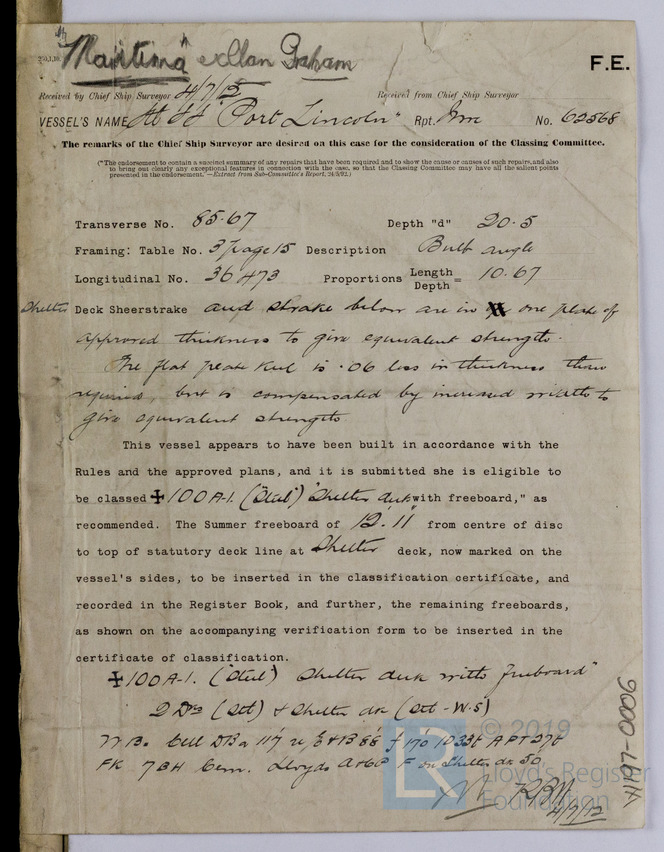 "Maritima" exClan Graham
F.E.
Received by Chief Ship Surveyor 4/7/12
Received from Chief Ship Surveyor
VESSEL'S NAME "Port Lincoln" Rpt. No. 62568
The remarks of the Chief Ship Surveyor are desired on this case for the consideration of the Classing Committee.
("The endorsement to contain a succinct summary of any repairs that have been required and to show the cause or causes of such repairs, and also
to bring out clearly any exceptional features in connection with the case, so that the Classing Committee may have all the salient points
presented in the endorsement."—Extract from Sub-Committee's Report, 24/9/92.)
Transverse No. 85.67 Depth "d" 20.5
Framing: Table No. 3 page 15 Description Bulb angle
Longitudinal No. 36473 Proportions Length/Depth = 10.67
Shelter Deck Sheerstrake and strake below are in one plate of
approved thickness to give equivalent strength.
The flat plate keel is .06 less in thickness than
required, but is compensated by increased width to
give equivalent strength
This vessel appears to have been built in accordance with the
Rules and the approved plans, and it is submitted she is eligible to
be classed ✠100A-1. (Steel) "Shelter deck with freeboard," as
recommended. The Summer freeboard of 12'.11" from centre of disc
to top of statutory deck line at Shelter deck, now marked on the
vessel's sides, to be inserted in the classification certificate, and
recorded in the Register Book, and further, the remaining freeboards,
as shown on the accompanying verification form to be inserted in the
certificate of classification.
✠100A-1. (Steel) Shelter deck with freeboard"
2 Dks (Stl) & Shelter dk (Stl - W.S)
Cell DB a 117' 88' f 170' 1033t APT 27t
FK 7BH Cem. Lloyds A&CP F on Shelter dk 50
4/7/12
© 2019
LR
Lloyd's Register
Foundation
W1167-0006